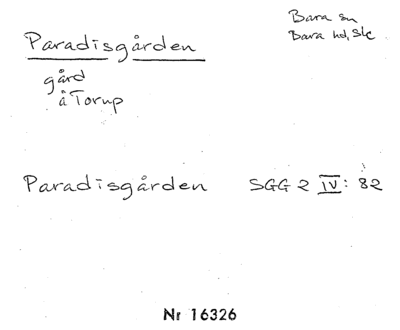 Paradisgården
Bara sn
Bara hd, Sk
gård
å Torup
Paradisgården SGG 2 IV: 82
Nr 16326